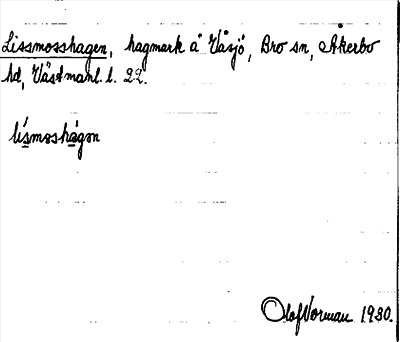 Lissmosshagen, hagmark å Våsjö, Bro sn, Åkerbo
hd, Västmanl. l. 22.
lísmoshàgan
Olof Norman 1930.